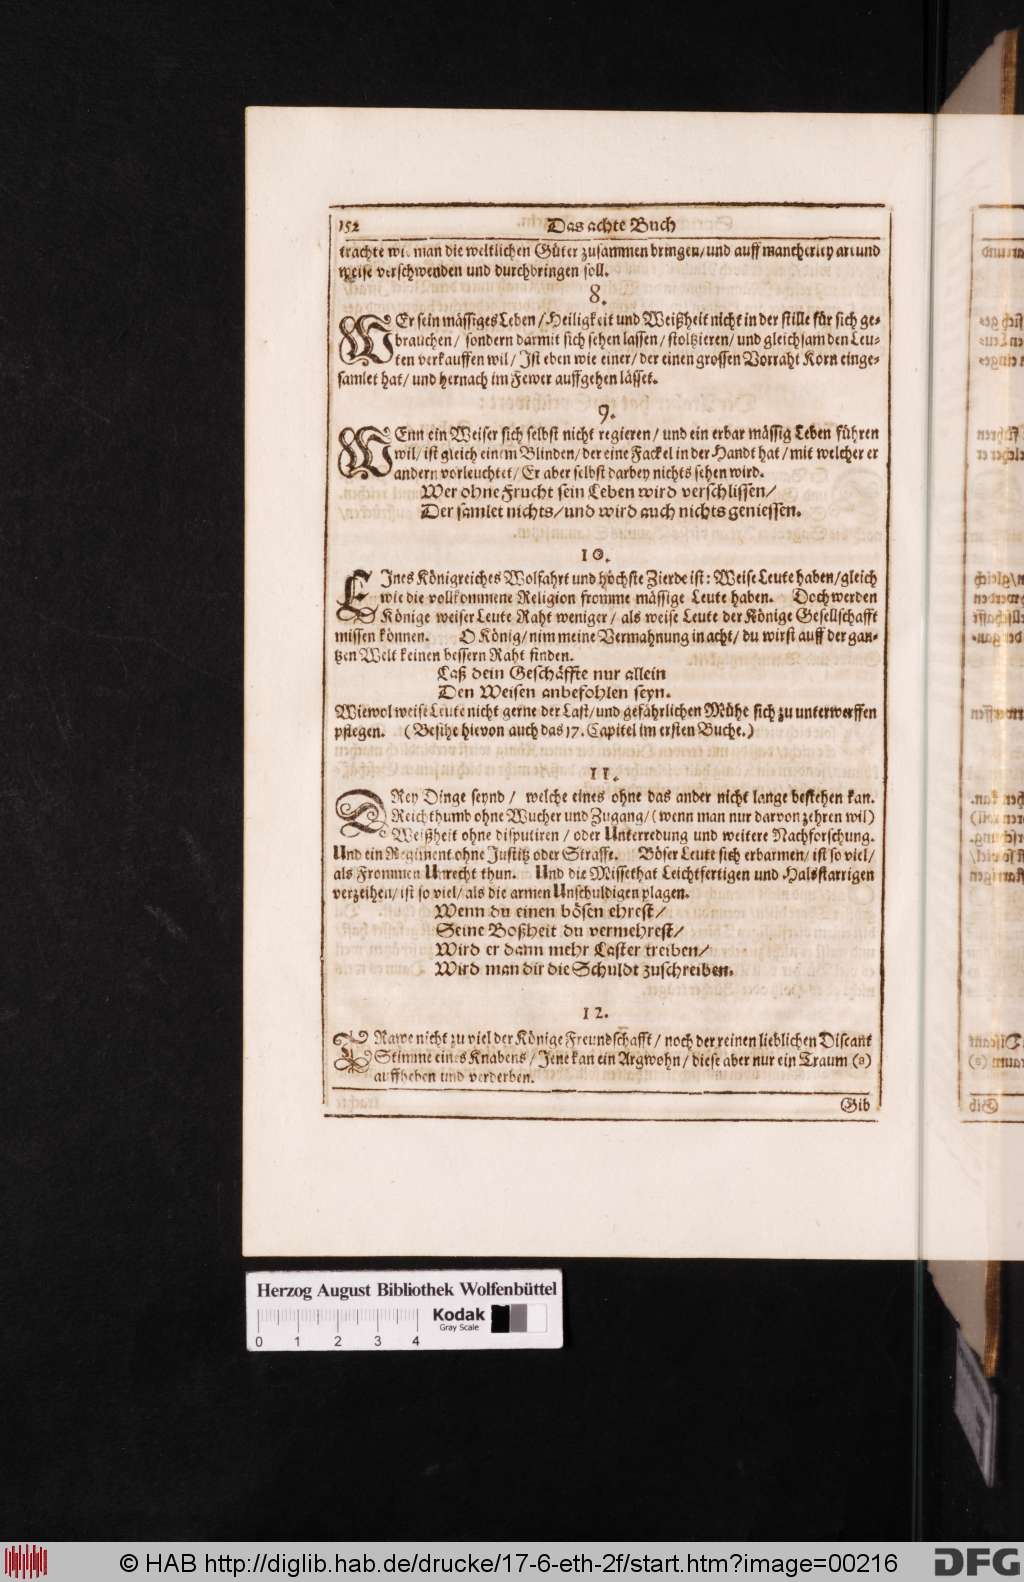 152 Das achte Buch
trachte wie man die weltlichen Güter zusammen bringen/ und auff mancherley art und
weise verschwenden und durchbringen soll.
8.
WEr sein mässiges Leben / Heiligkeit und Weißheit nicht in der stille für sich ge-
brauchen/ sondern darmit sich sehen lassen/ stoltzieren/ und gleichsam den Leu-
ten verkauffen wil/ Ist eben wie einer/ der einen grossen Vorraht Korn einge-
samlet hat/ und hernach im Fewer auffgehen lässet.
9.
WEnn ein Weiser sich selbst nicht regieren/ und ein erbar mässig Leben führen
wil/ ist gleich einem Blinden/ der eine Fackel in der Handt hat/ mit welcher er
andern vorleuchtet/ Er aber selbst darbey nichts sehen wird.
Wer ohne Frucht sein Leben wird verschlissen/
Der samlet nichts/ und wird auch nichts geniessen.
10.
EInes Königreiches Wolfahrt und höchste Zierde ist: Weise Leute haben/ gleich
wie die vollkommene Religion fromme mässige Leute haben. Doch werden
Könige weiser Leute Raht weniger/ als weise Leute der Könige Gesellschafft
missen können. O König/ nim meine Vermahnung in acht/ du wirst auff der gan-
tzen Welt keinen bessern Raht finden.
Laß dein Geschäffte nur allein
Den Weisen anbefohlen seyn.
Wiewol weise Leute nicht gerne der Last/ und gefährlichen Mühe sich zu unterwerffen
pflegen. (Besihe hievon auch das 17. Capitel im ersten Buche.)
11.
DRey Dinge seynd / welche eines ohne das ander nicht lange bestehen kan.
Reichthumb ohne Wucher und Zugang/ (wenn man nur darvon zehren wil)
Weißheit ohne disputiren / oder Unterredung und weitere Nachforschung.
Und ein Regiment ohne Justitz oder Straffe. Böser Leute sich erbarmen/ ist so viel/
als Frommen Unrecht thun. Und die Missethat Leichtfertigen und Halsstarrigen
verzeihen/ ist so viel/ als die armen Unschuldigen plagen.
Wenn du einen bösen ehrest/
Seine Boßheit du vermehrest/
Wird er dann mehr Laster treiben/
Wird man dir die Schuldt zuschreiben.
12.
TRawe nicht zu viel der Könige Freundschafft/ noch der reinen lieblichen Discant
Stimme eines Knabens/ Jene kan ein Argwohn/ diese aber nur ein Traum (a)
auffheben und verderben.
Gib
Herzog August Bibliothek Wolfenbüttel
0 1 2 3 4
Kodak
Gray Scale
© HAB http://diglib.hab.de/drucke/17-6-eth-2f/start.htm?image=00216
DFG